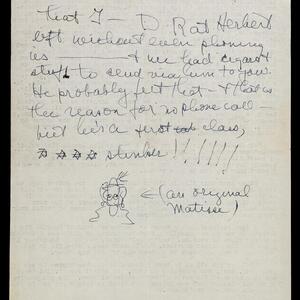 that I — D. Rat Herbert
left without even phoning
us — & we had
stuff to send via him to you.
He probably felt that — & that is
the reason for no phone call —
but he's a first class,
☆ ☆ ☆ ☆ stinker !!!!!!
← (an original
Matisse)